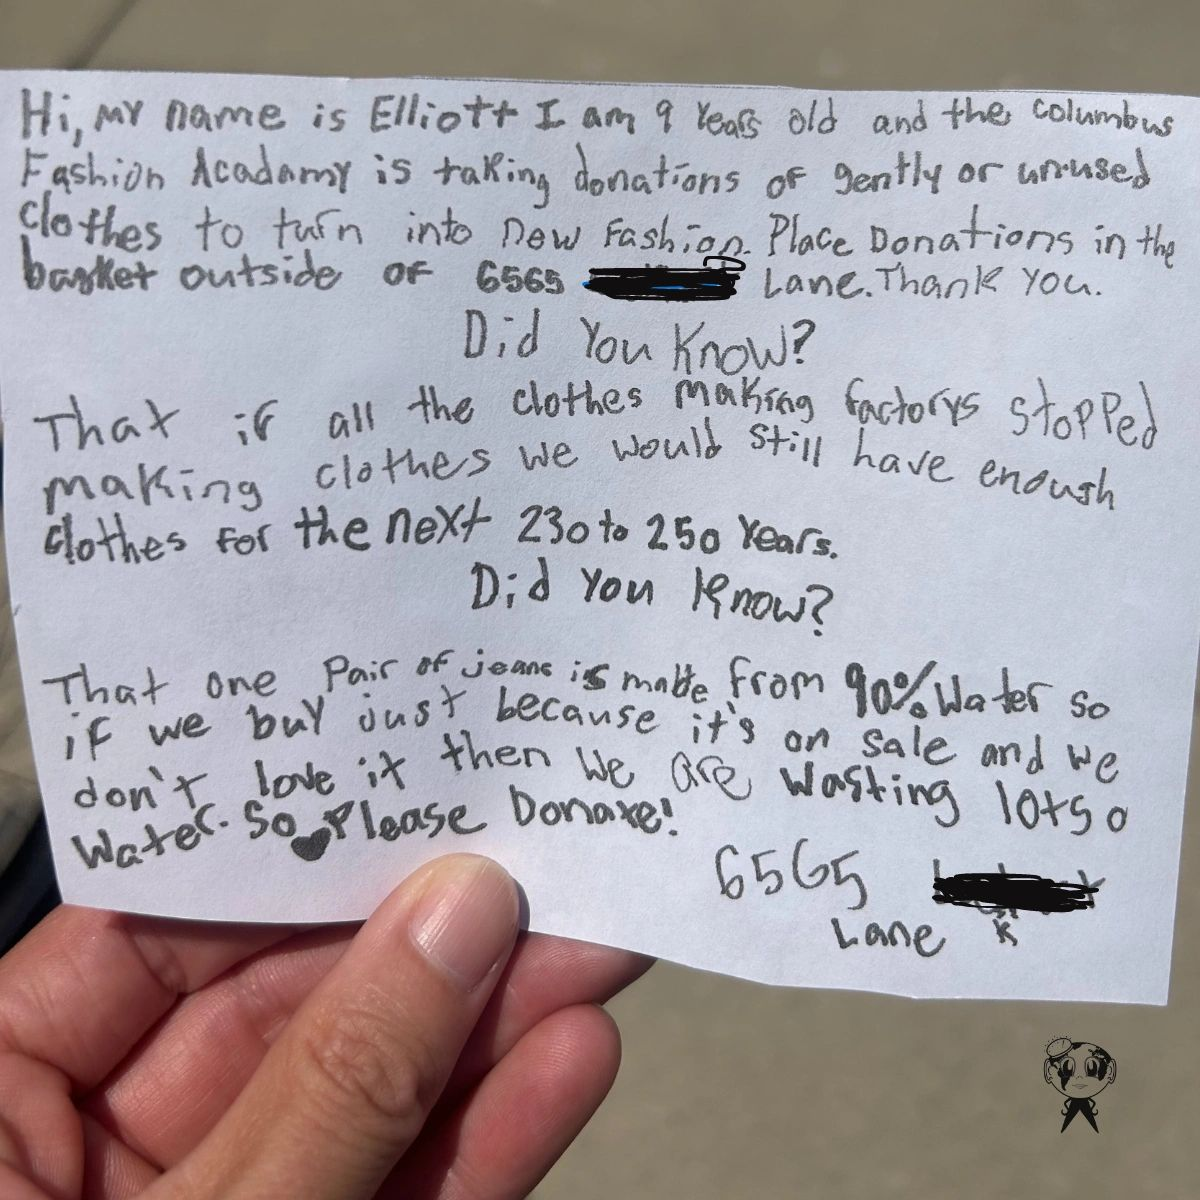 Hi, my name is Elliott I am 9 years old and the columbus
Fashion Acadamy is taking donations of gently or unused
clothes to turn into new Fashion. Place Donations in the
basket outside of 6565 Lane. Thank you.
Did You Know?
That if all the clothes making factorys stopped
making clothes we would still have enough
clothes for the next 230 to 250 years.
Did you Know?
That one Pair of jeans is made from 90% water so
if we buy just because it's on sale and we
don't love it then we are wasting lots o
water. So Please Donate!
6565
Lane K